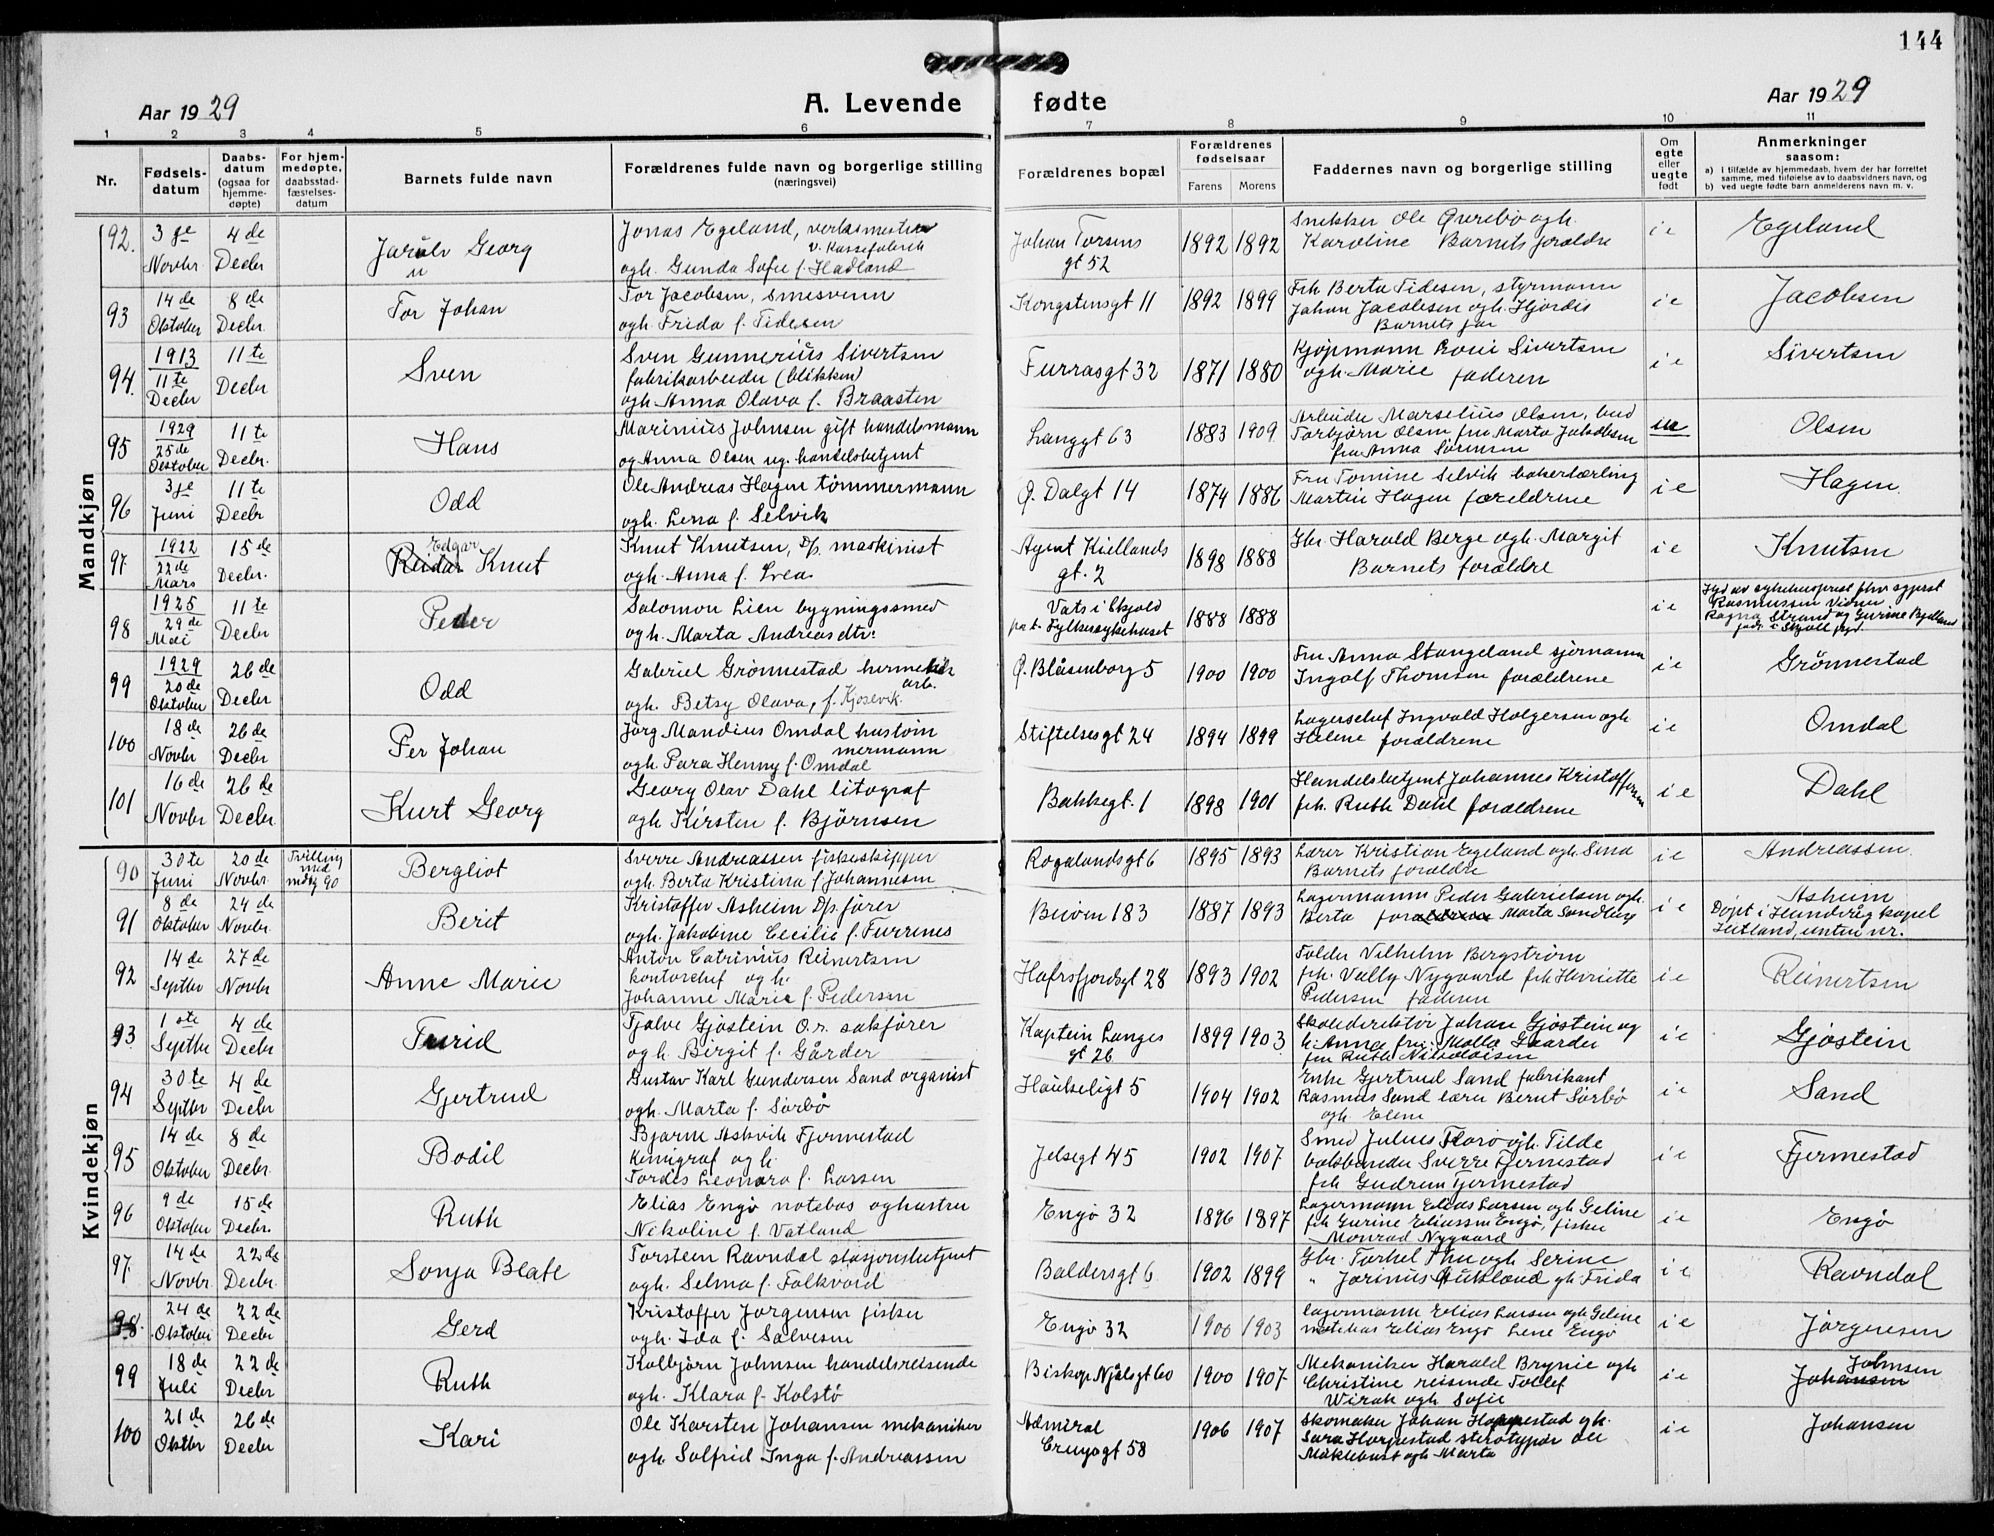 144
Aar 1929 A. Levende fødte Aar 1929
1 2 3 4 5 6 7 8 9 10 11
Nr. Fødsels-datum Daabs-datum (ogsaa for hjemme-døpte) For hjem-medøpte, daabsstad-fæstelses-datum Barnets fulde navn Forældrenes fulde navn og borgerlige stilling (næringsvei) Forældrenes bopæl Forældrenes fødselsaar Farens Morens Faddernes navn og borgerlige stilling Om egte eller uegte født Anmerkninger saasom:
a) I tilfælde av hjemmedaab, hvem der har forrettet samme, med tilføielse av to daabsvidners navn, og
b) ved uegte fødte barn anmelderens navn m. v.
Mandkjøn
92. 3je Novbr 4de Decbr Georg Jonas Egeland, verksmester
ogh. Gunda Sofie f. Hadland Johan Torsens gt 52 1892 1892 Snekker Ole Øvrebø ogh.
Karoline Barnets foraldre i e Egeland
93 14de Oktober 8de Decbr. Tor Johan Tor Jacobsen, Smesvenn
ogh. Frida f. Tidesen Kongstensgt 11 1892 1899 Frk Berta Tidesen, styrmann
Johan Jacobsen ogh. Hjordis
Barnets far i e Jacobsen
94. 1913 11te Decbr 11te Decbr Sven Sven Gunnerius Sivertsen
fabrikarbeider (blikken)
ogh. Anna Olava f. Braasten Furrasgt 32 1871 1880 Kjøpmann Sivertsen
ogh. Marie faderen i e Sivertsen
95 1929 25de Oktober 11te Decbr. Hans Marinius Johnsen gift handelsmann
og Anna Olsen ug. handelsbetjent Langgt 63 1883 1909 Arbeider Marselius Olsen, bud
Torbjørn Olsen fru Marta Jakobsen
fru Anna Sørensen ue Olsen
96 3je Juni 11te Decbr Odd Ole Andreas Hagen tømmermann
ogh. Lena f. Selvik Ø. Dalgt 14 1874 1886 Fru Tomine Selvik bakerlærling
Martin Hagen foreldrene i e Hagen
97 1922 22de Mars 15de Decbr. Edgar
Reidar Knut Knut Knutsen, D/p. maskinist
ogh. Anna f. Svea Agent Kiellands gt. 2 1898 1888 Gbr. Harald Berge ogh. Margit
Barnets foraldre i e Knutsen
98 1925 29de Mai 11te Decbr Peder Salomon Lien bygningssmed
ogh. Marta Andreasdtr. Vats i Skjold
p.t. Fylkessykehuset 1888 1888 i e
99 1929 20de Oktober 26de Decbr Odd Gabriel Grønnestad hermetikk
arb.
ogh. Betsy Olava, f. Kjosevik. Ø. Blåsenborg 5 1900 1900 Fru Anna Stangeland sjømann
Ingolf Thomsen foraldrene i e Grønnestad
100 18de Novbr 26de Decbr Per Johan Jörg Mandius Omdal hustøm
mermann
ogh. Para Henny f. Omdal Stiftelsesgt 24 1894 1899 Lagerschef Ingvald Holgersen ogh
Helene foraldrene i e Omdal
101 16de Novbr 26de Decbr Kurt Georg Georg Olav Dahl litograf
ogh. Kirsten f. Bjørnsen Bakkegt. 1 1898 1901 Handelsbetjent Johannes Kristoffersen
frk. Ruth Dahl foraldrene i e Dahl
Kvindekjøn
90 30te Juni 20de Novbr. Tvilling med mdkj 90 Bergliot Sverre Andreassen fiskeskipper
ogh. Berta Kristina f. Johannesen Rogalandsgt 6 1895 1893 Lærer Kristian Egeland ogh. Sina
Barnets foraldre i e Andreassen
91 8de Oktober 24de Novbr. Berit Kristoffer Asheim D/p. fører
ogh. Jakobine Cecilie f. Furrenes 183 1887 1893 Lagermann Peder Gabrielsen ogh.
Berta foraldrene Marta Sandberg i e Asheim
Døpt i kapel
Jutland, uten nr.
92 14de Septbr 27de Novbr Anne Marie Anton Catrinius Reinertsen
kontorchef ogh.
Johanne Marie f. Pedersen Hafrsfjordsgt 28 1893 1902 Tolder Vilhelm Bergstrøm
frk. Vally Nygaard frk Henriette
Pedersen faderen i e Reinertsen
93 1ste Septbr 4de Decbr Turid Tjalve Gjøstein O.r. sakfører
ogh. Birgit f. Gårder Kaptein Langes gt 26 1899 1903 Skoledirektør Johan Gjøstein og
h. Anna fru Molla Gaarder
fru Ruth Nikolaisen i e Gjøstein
94 30te Septbr 4de Decbr Gjertrud Gustav Karl Gundersen Sand organist
ogh. Marta f. Sørbø Haukeligt 5 1904 1902 Enke Gjertrud Sand fabrikant
Rasmus Sand lærer Bernt Sørbø
ogh Elene i e Sand
95 14de Oktober 8de Decbr. Bodil Bjarne Askvik Fjermestad
Kemigraf ogh.
Tordis Leonora f. Larsen Jelsegt 45 1902 1907 Smed Julius Florø ogh. Tilde
Sverre Fjermestad
frk Gudrun Fjermestad i e Fjermestad
96 9de Oktober 15de Decbr. Ruth Elias Engø notebas oghustru
Nikoline f. Vatland Engø 32 1896 1897 Lagermann Elias Larsen ogh Geline
frk Gurine Eliassen Engø, fisker
Monrad Nygaard i e Engø
97. 14de Novbr. 22de Decbr. Sonja Beate Torstein Ravndal stasjonsbetjent
ogh. Selma f. Folkvord Baldersgt 6 1902 1899 Gbr. Torkel Thu ogh Serine
" Jorinius Aukland gh. Frida i e Ravndal
98. 24de Oktober 22de Decbr Gerd Kristoffer Jørgensen fisker
ogh. Ida f. Salvesen Engø 32 1900 1903 Lagermann Elias Larsen ogh Geline
notebas Elias Engø Lene Engø i e Jørgensen
99 18de Juli 22de Decbr Ruth Kolbjørn Johnsen handelsreisende
ogh. Klara f. Kolstø Biskop Njålsgt 60 1900 1907 Mekaniker Harald Brynie ogh
Christine reisende Tollef
Wirak ogh Sofie i e Johnsen
Johansen
100 21de Oktbr 26de Decbr Kari Ole Karsten Johansen mekaniker
ogh. Solfrid Inga f. Andreassen Admiral Cruysgt 58 1906 1907 Skomaker Johan Hoppestad ogh.
Sara Horpestad sterotypør Ole
Måklebust ogh Marta i e Johansen